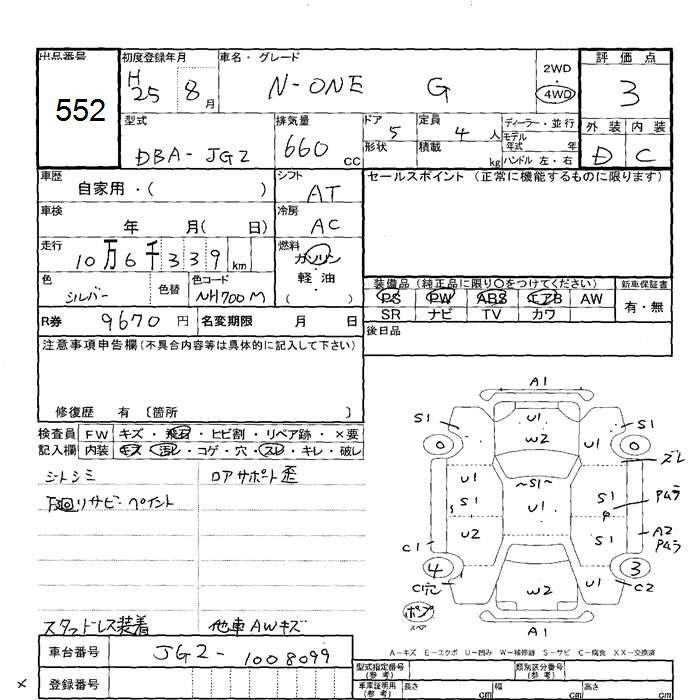 出品番号 初度登録年月 車名・グレード 評価点
552 H25 8月 N-ONE G 2WD 4WD 3
型式 排気量 ドア 5 定員 4人 ディーラー・並行 外装 内装
DBA-JG2 660cc 形状 積載 kg モデル年式 年 ハンドル 左・右 D C
車歴 自家用・( ) シフト AT セールスポイント (正常に機能するものに限ります)
車検 年 月( 日) 冷房 AC
走行 10万6千339km 燃料 ガソリン 軽油 ( )
色 シルバー 色替 色コード NH700M
装備品 (純正品に限り○をつけてください) 新車保証書
PS PW ABS エアB AW 有・無
SR ナビ TV カワ
R券 9670円 名変期限 月 日 後日品
注意事項申告欄(不具合内容等は具体的に記入して下さい)
修復歴 有 〔箇所 〕
検査員 FW キズ・飛石・ヒビ割・リペア跡・×要
記入欄 内装 キズ・汚レ・コゲ・穴・スレ・キレ・破レ
シートシミ ロアサポート歪
下廻りサビ・ペイント
スタッドレス装着 他車AWキズ
A1
S1 U1 S1
0 W2 U1 0
ズレ
U1 ~S1~
S1 U1 S1 P4ラ
U2 S1 A2 P4ラ
C1
4 3
C穴 W2 U1 C2
ポンプ スペア
A1
A-キズ E-エクボ U-凹み W-補修跡 S-サビ C-腐食 XX-交換済
車台番号 JG2-1008099
型式指定番号(参考) 類別区分番号(参考)
× 登録番号 車庫証明用(参考) 長さ cm 幅 cm 高さ cm